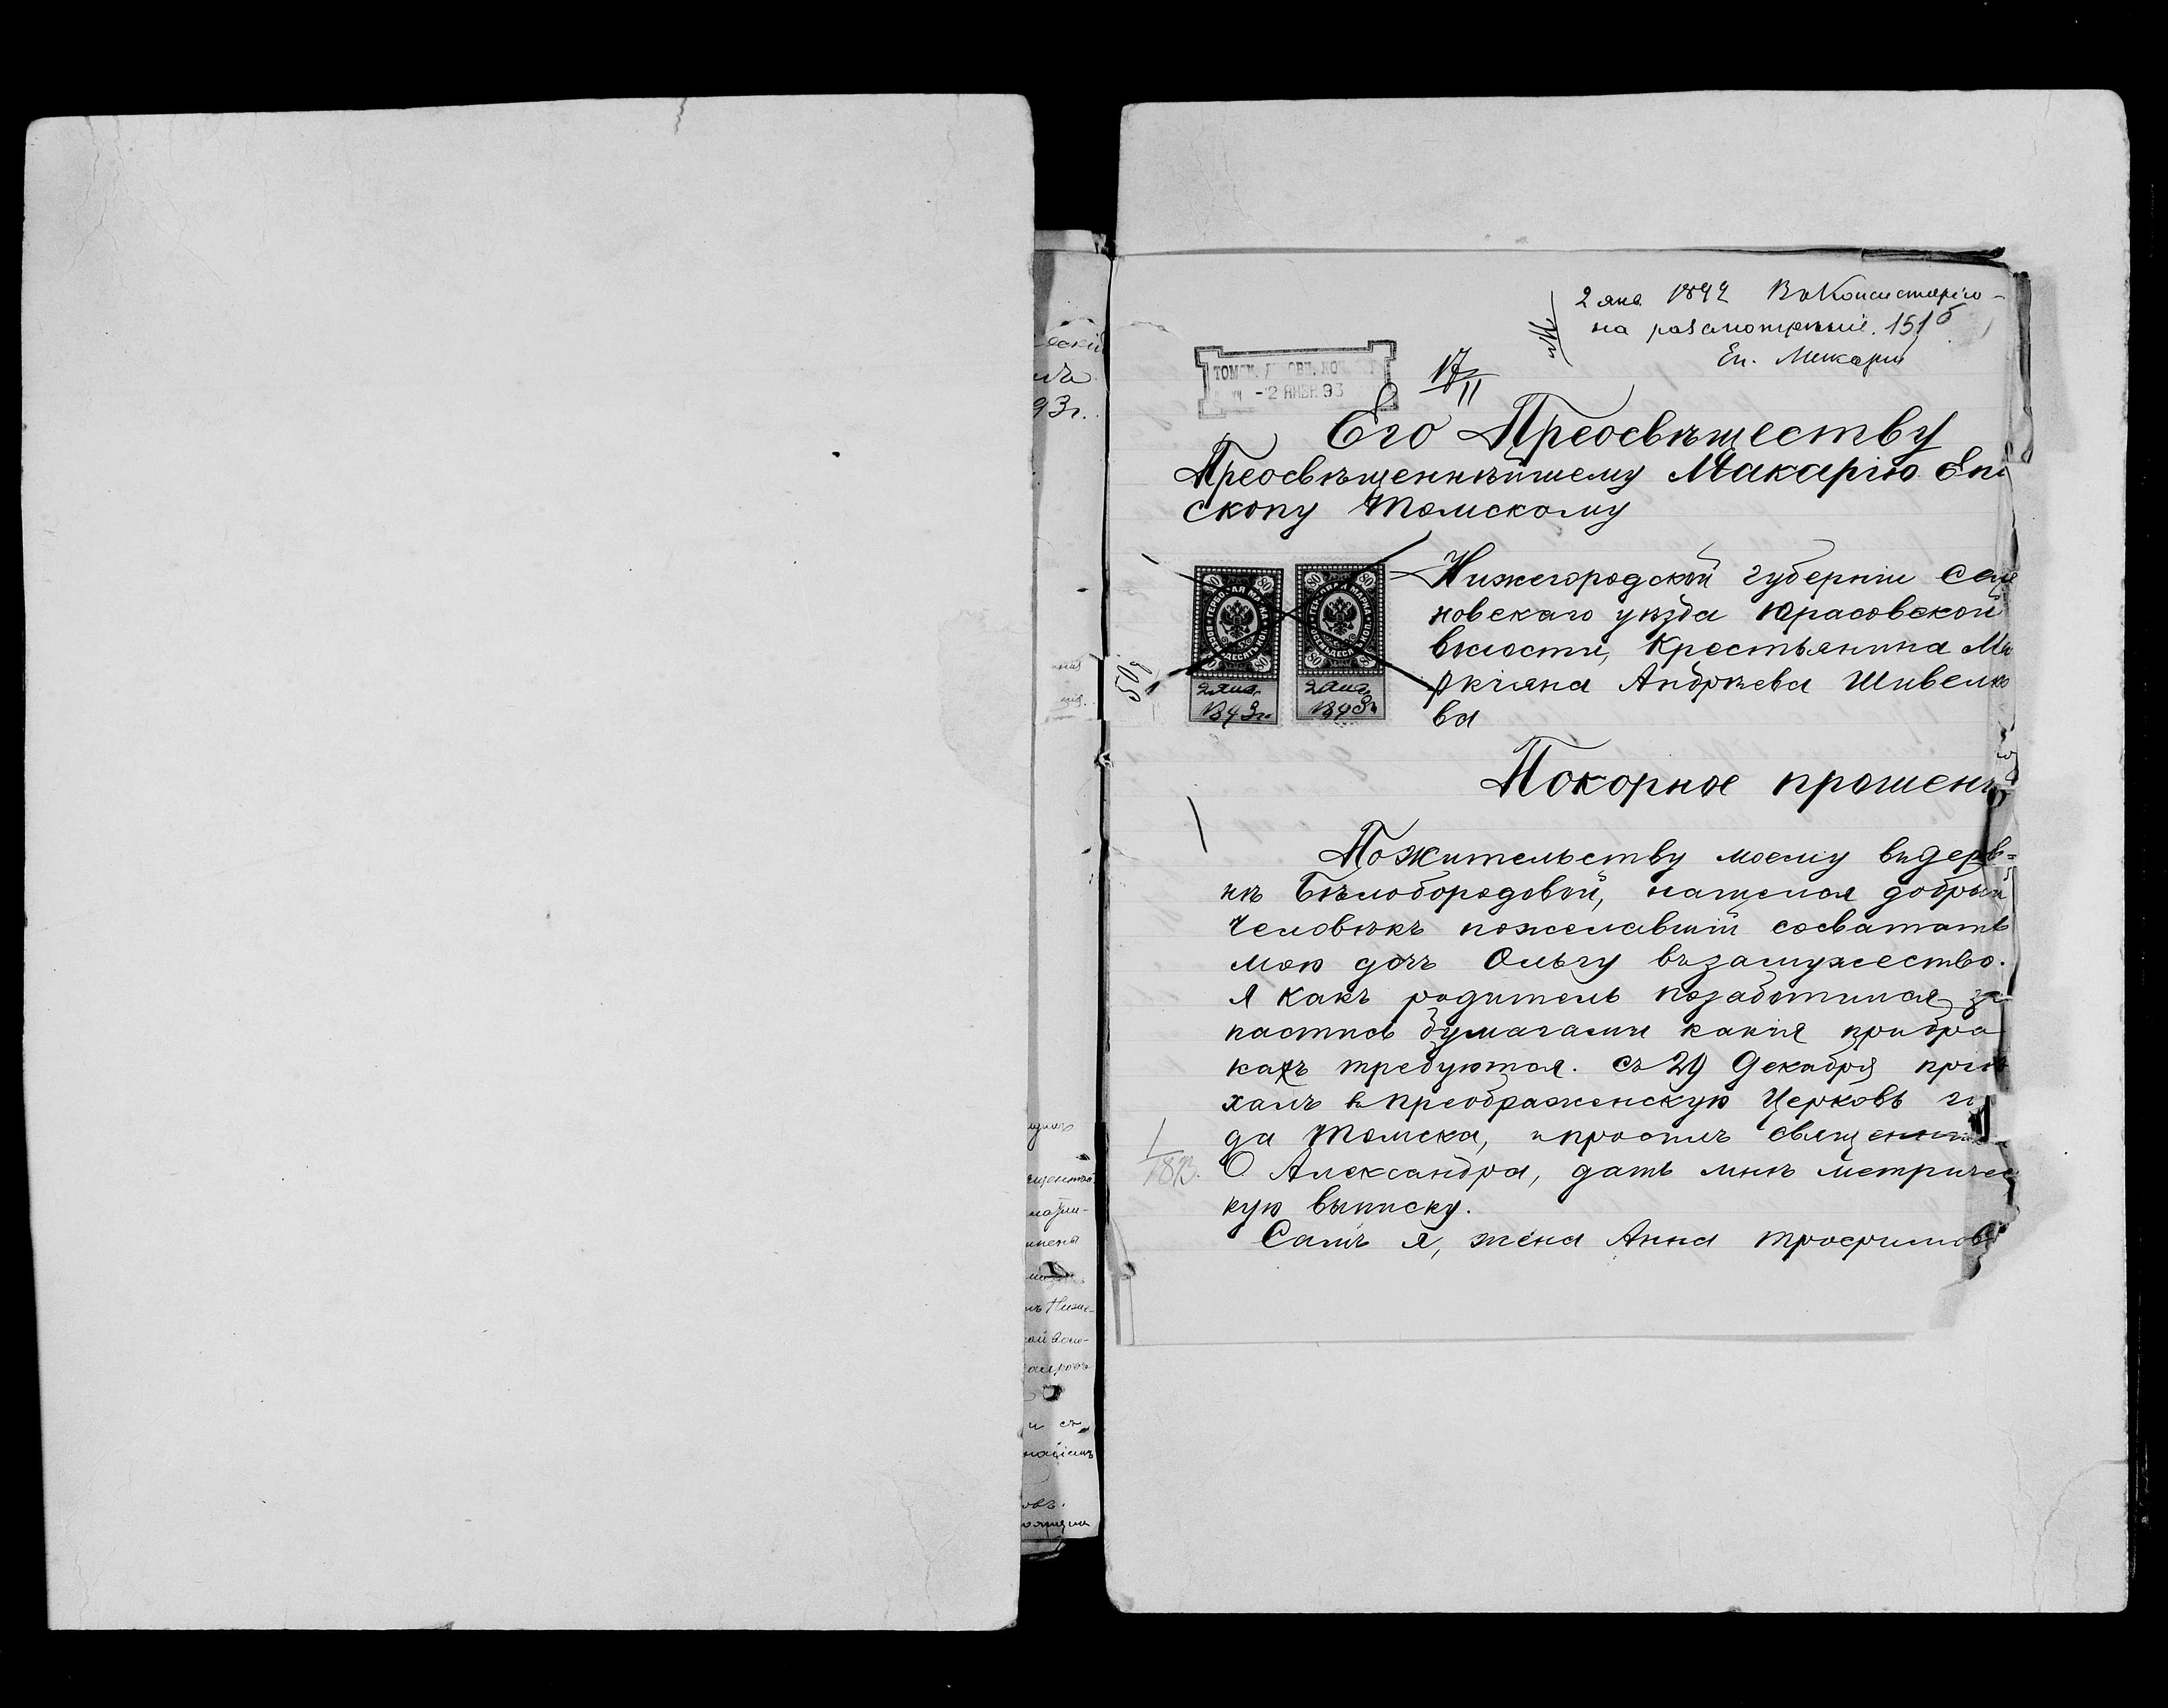 2 янв. 1892 Въ Консисторію
на разсмотрѣніе. 151
Еп. Макарій
ТОМСК. ДУХОВН. КОН
-2 ЯНВР. 93
17/II
Его Преосвѣществу
Преосвѣщеннѣйшему Макарію Епи
скопу Томскому
80 80
ГЕРБОВАЯ МАРКА
ВОСЕМЬДЕСЯТЪ КОП.
80
2 янв.
1893г.
80 80
ГЕРБОВАЯ МАРКА
ВОСЕМЬДЕСЯТЪ КОП.
80 80
2 янв.
1893г.
509
Нижегородской губерніи Семе
новскаго уѣзда Юрасовской
волости, Крестьянина Ма
ркіяна Андрѣева Шивелко
ва
Покорное прошені
Пожительству моему въдерев=
нѣ Бѣлобородовой, нашелся добрый
Человѣкъ пожелавшій сосватать
мою дочь Ольгу въ замужество.
Я какъ родитель позаботился за
пастись бумагами какія при бра
кахъ требуются. Съ 29 Декабря пріѣ
халъ в преображенскую Церковь го
да Томска, и просилъ священника
О Александра, дать мнѣ метричес
кую выписку.
Самъ я, жена Анна Трофимова
1/1893.
93г.